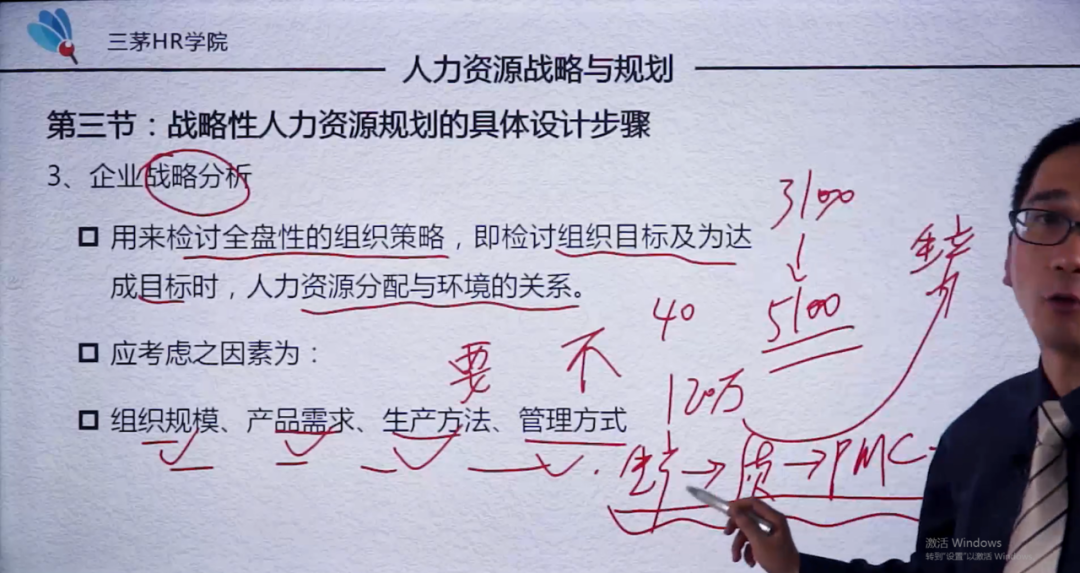 三茅HR学院
人力资源战略与规划
第三节：战略性人力资源规划的具体设计步骤
3、企业战略分析
用来检讨全盘性的组织策略，即检讨组织目标及为达
成目标时，人力资源分配与环境的关系。
应考虑之因素为：
组织规模、产品需求、生产方法、管理方式
3100
↓
5100
40
要 不
120万
生产→质→PMC
激活 Windows
转到"设置"以激活 Windows